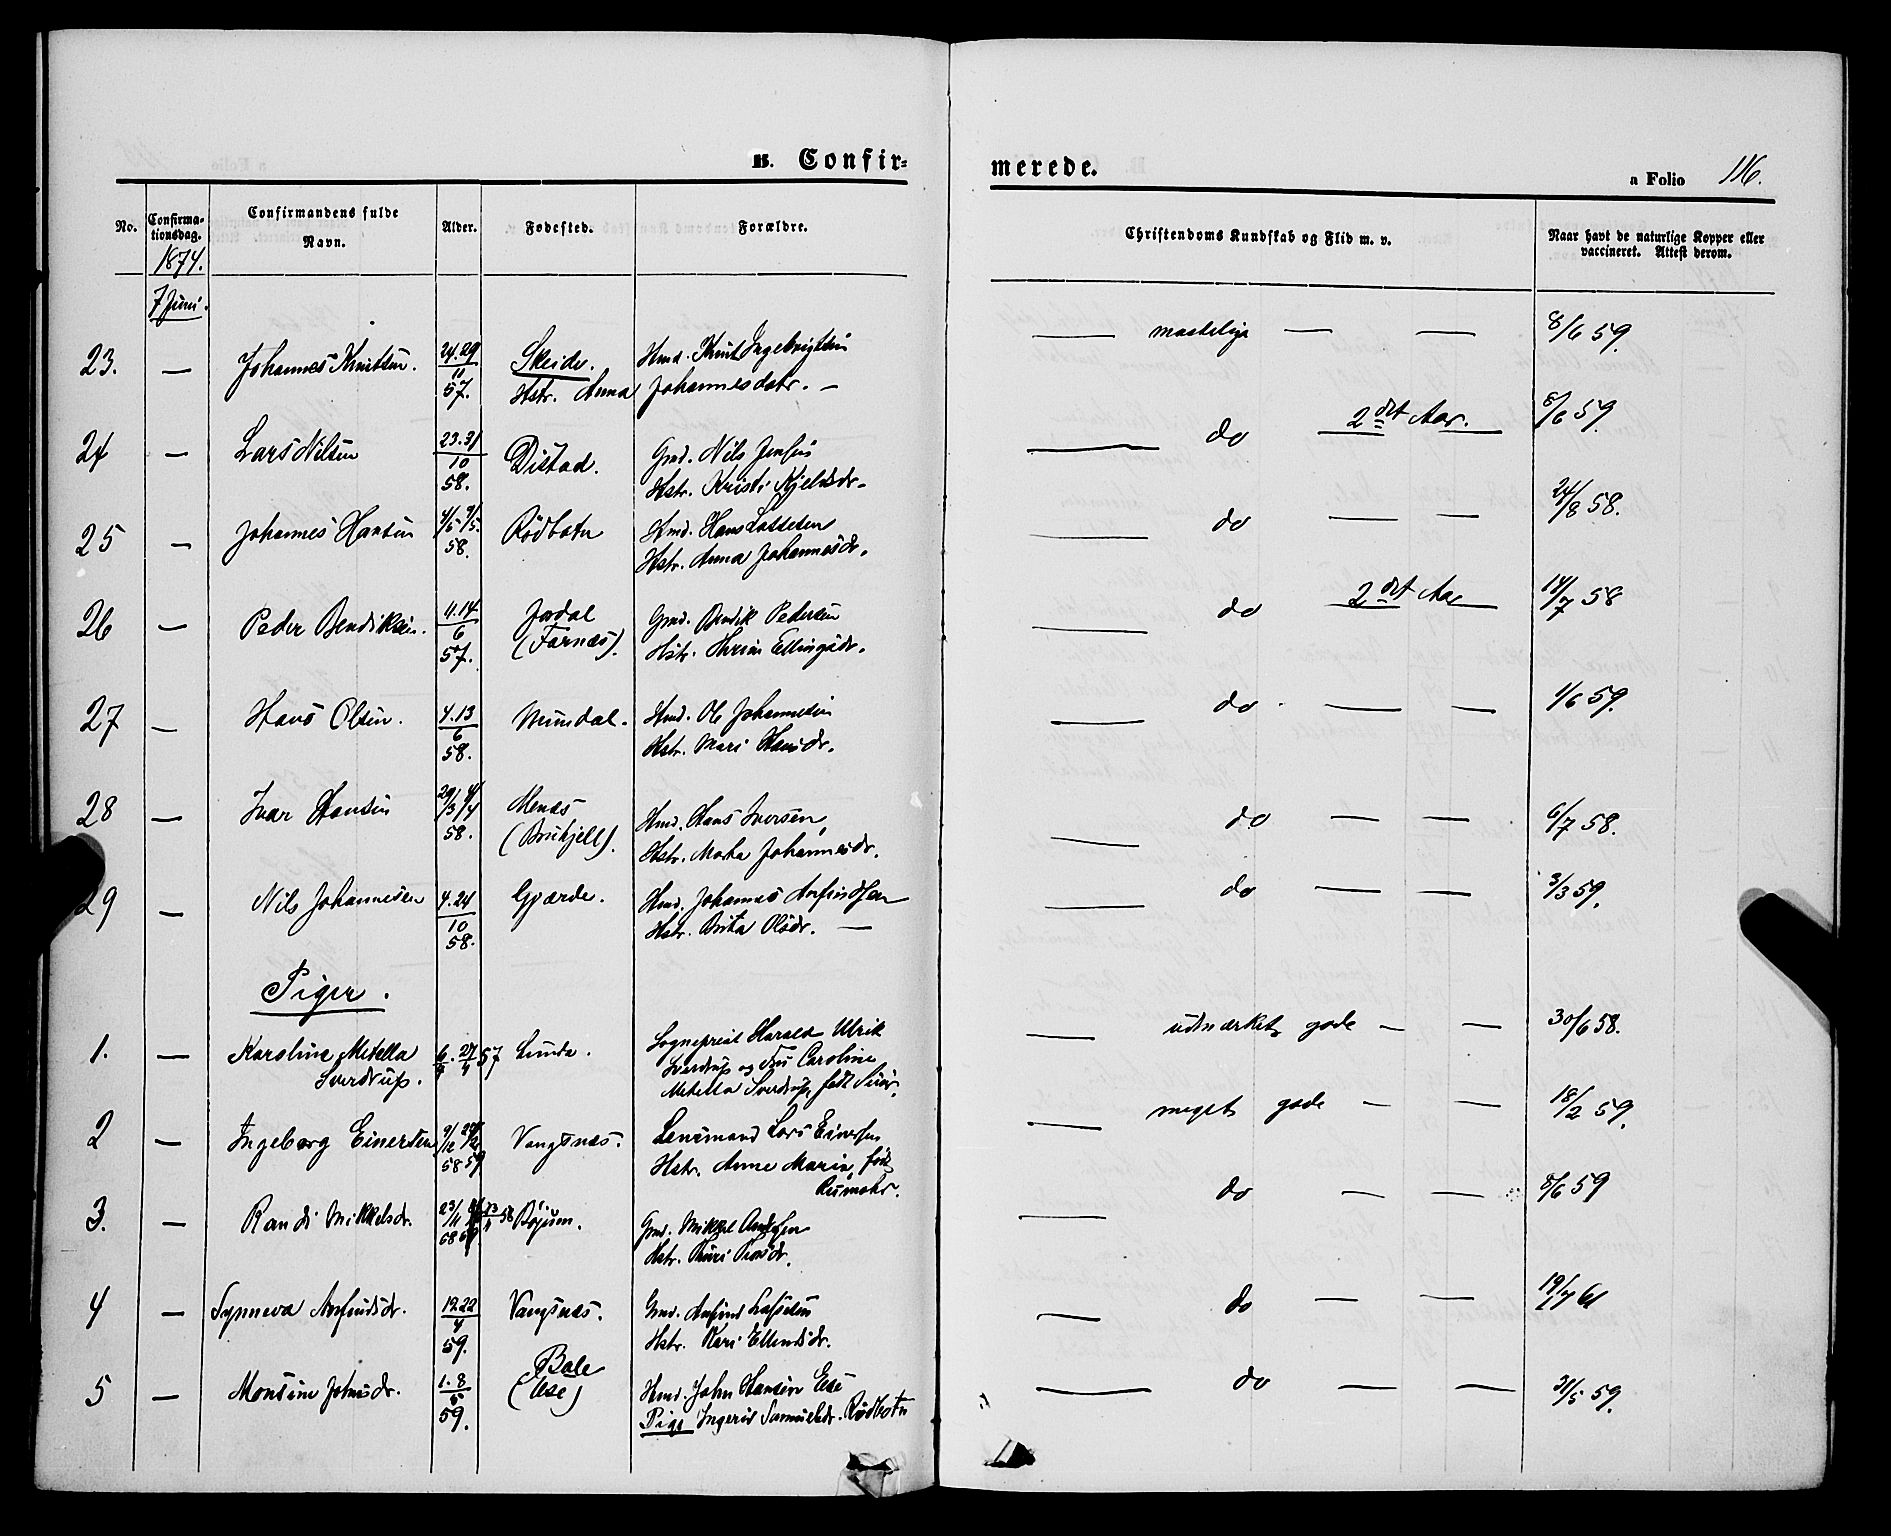 B. Confir=
merede.
a Folio 116.
No.
Confirma-
tionsdag.
Confirmandens fulde
Navn.
Alder.
Fødested.
Forældre.
Christendoms Kundskab og Flid m. v.
Naar havt de naturlige Kopper eller
vaccineret. Attest derom.
1874.
7 Juni.
23. — Johannes Knutsen. 24.29/11 57. Skeide. Hmd. Knut Ingebrigtsen
Hstr. Anna Johannesdatr. —
— maadelige — — 8/6 59.
24 — Lars Nilsen 23.31/10 58. Distad. Gmd. Nils Jensen
Hstr. Kristi Kjelsdr.
— do 2det Aar. 8/6 59.
25 — Johannes Hansen 4/5 9/5. 58. Rødbotn Hmd. Hans Lassesen
Hstr. Anna Johannesdr.
— do — — 24/8 58.
26 — Peder Bendiksen. 4.14/6 57. Jordal
(Farnæs). Gmd. Bendik Pedersen
Hstr. Ellingsdr.
— do 2det Aar 14/7 58
27 — Hans Olsen. 4.13/6 58. Mundal. Hmd. Ole Johannesen
Hstr. Mari Hansdr.
— do — — 1/6 59.
28 — Ivar Hansen 29/3 4/4 58. Menæs
Hmd. Hans Iversen
Hstr. Marta Johannesdr.
— do — — 6/7 58.
29 — Nils Johannesen 4.24/10 58. Gjærde. Hmd. Johannes Anfindsen
Hstr. Brita Olsdr. —
— do — — 3/3 59.
Piger.
1. — Karoline Metella
Sverdrup. 57 Sognepræst Harald Ulrik
Sverdrup og Fru Caroline
Metella Sverdrup, født Suur.
— udmærket gode — — 30/6 58.
2 — Ingeborg Einersen 58 59 Vangsnæs. Lensmand Lars Einersen
Hstr. Anne Marie, født
Rumohr.
— meget gode — — 18/2 59.
3. — Randi Mikkelsdr. Bøjum. Gmd. Mikkel
Hstr.
— do — — 8/6 59
4 — Synneva Anfindsdr. 19.22/4 59. Vangsnæs. Gmd. Anfind
Hstr. Kari Ellendsdr.
— do — — 19/7 61
5 — Monsine Johnsdr. 1.8/5 59. Bale
(Ese) Hmd. John Hansen Ese
Pige Ingerid Samuelsdr. Rødbotn
— do — — 31/5 59.